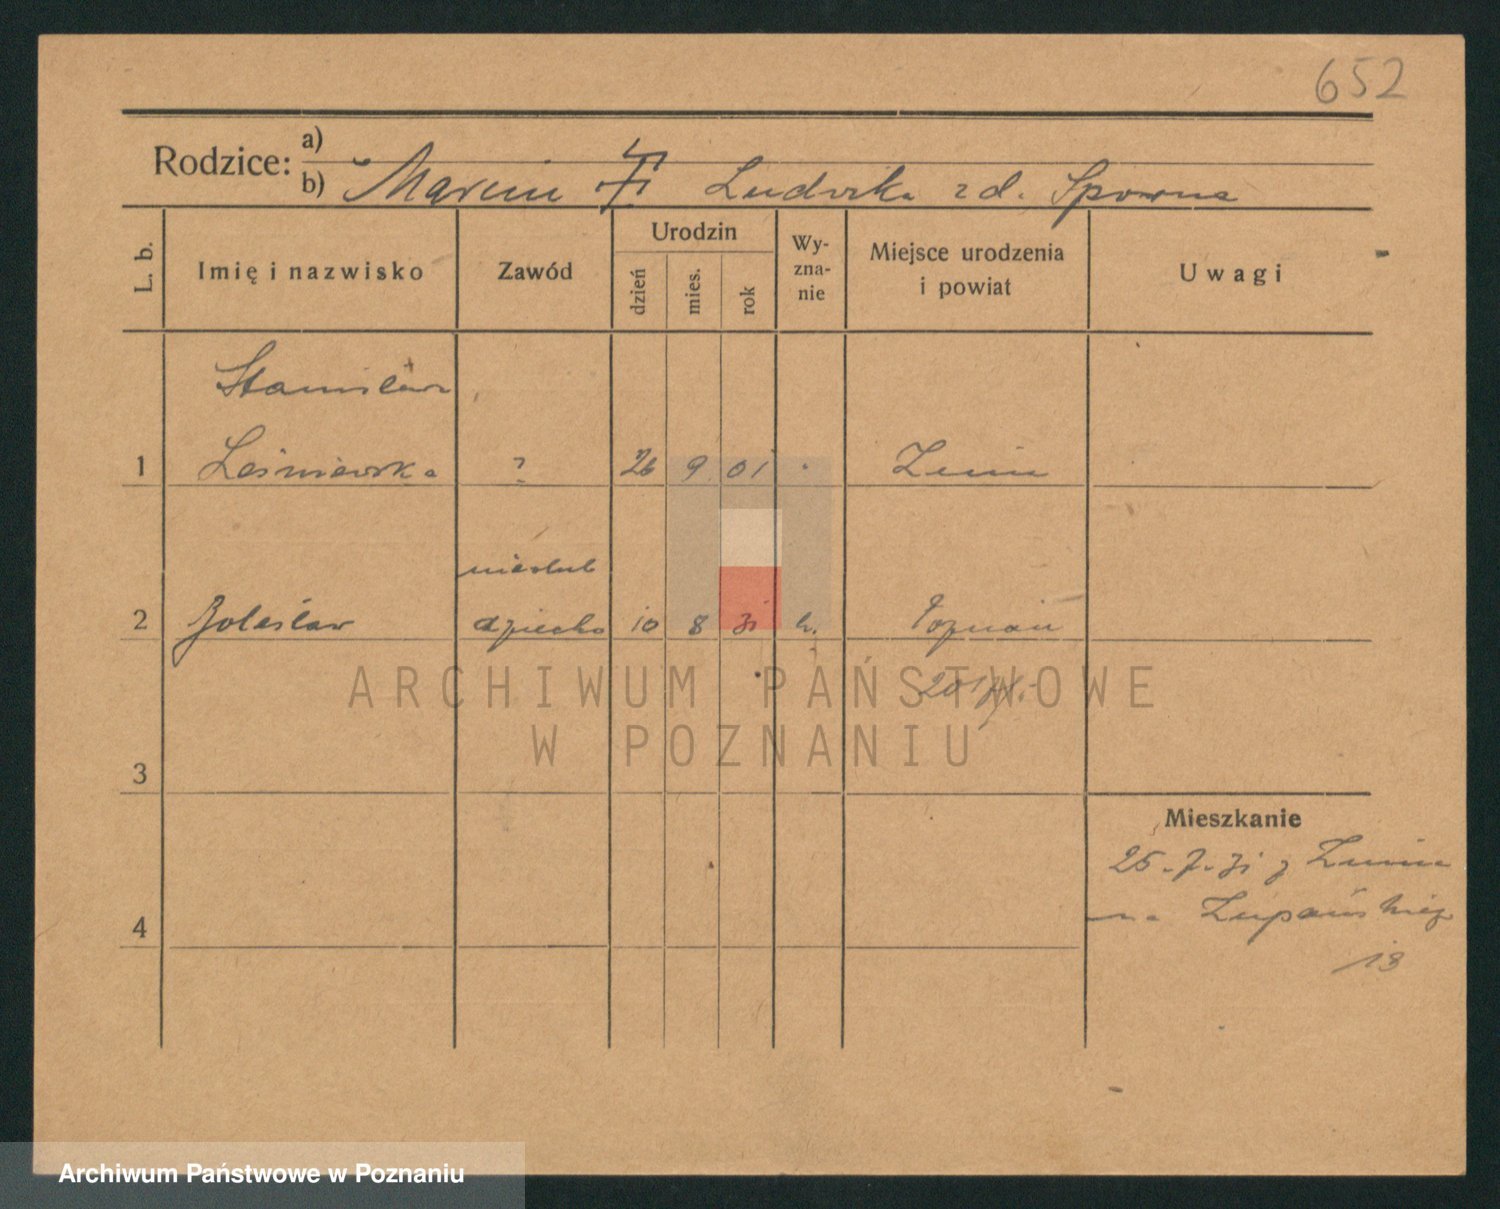 652
Rodzice: a)
b) Marcin Ludwika zd. Sporna
L. b. Imię i nazwisko Zawód Urodzin dzień mies. rok Wy-zna-nie Miejsce urodzenia i powiat Uwagi
Stanisława
1 Leśniewska ? 26 9 01 " Żnin
nieślub
2 Bolesław dziecko 10 8 31 k. Poznań
3
Mieszkanie
25.7.31 z Żnina
na Żupańskiego
4
13
ARCHIWUM PAŃSTWOWE
W POZNANIU
Archiwum Państwowe w Poznaniu